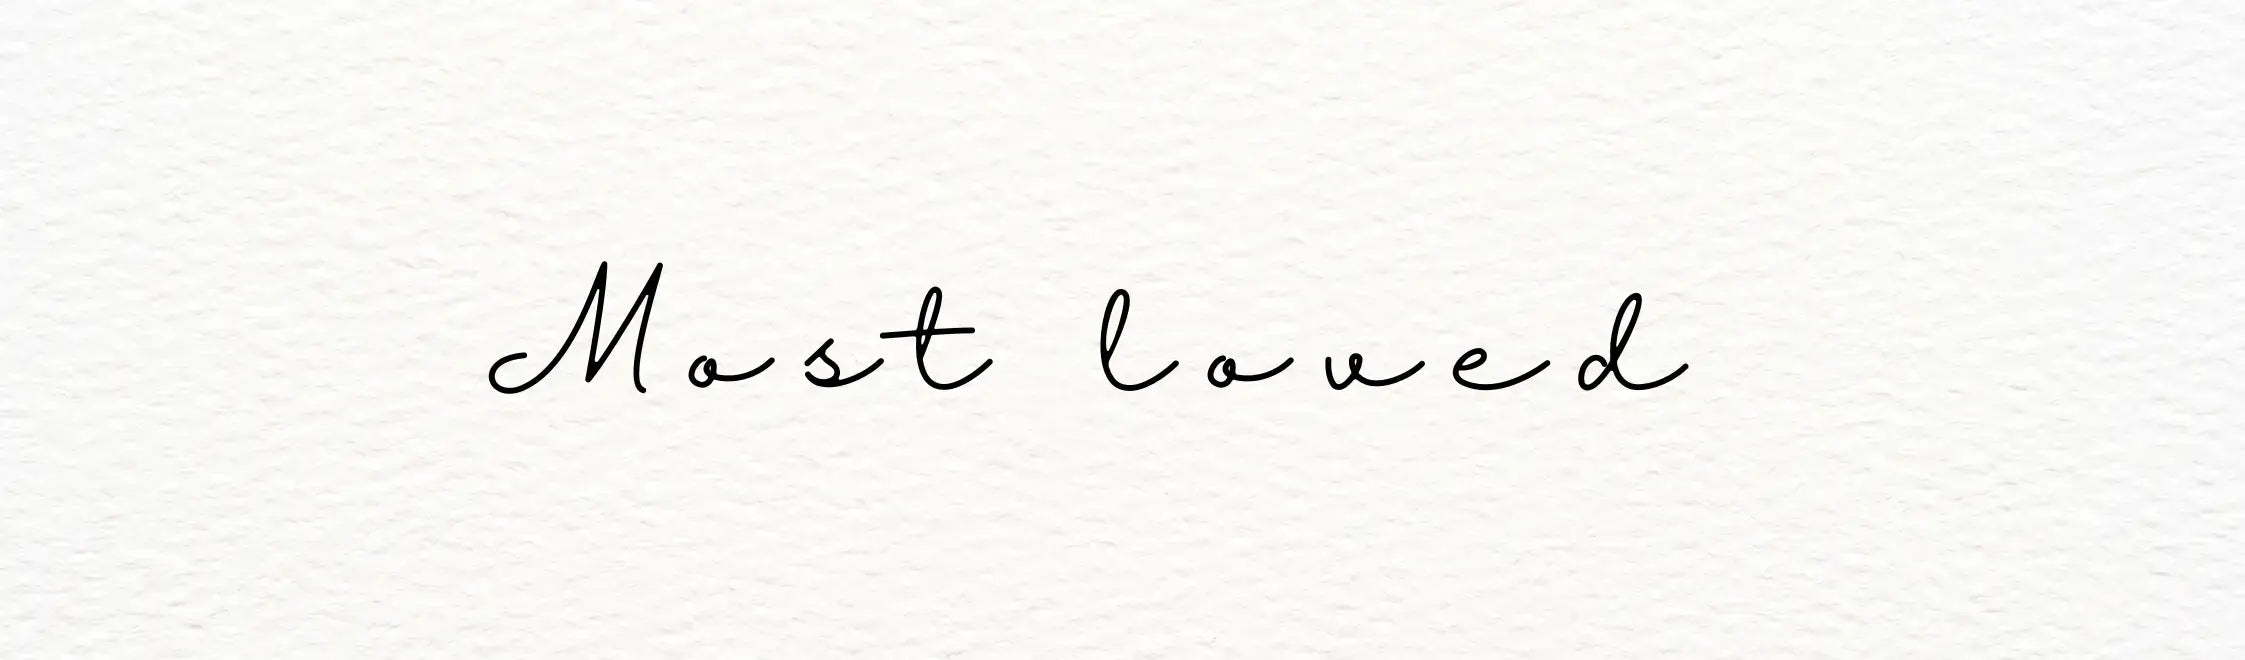 Most loved